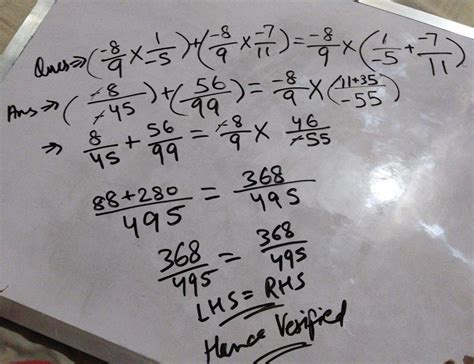 Ques ⇒ (-8/9 × 1/-5) + (-8/9 × -7/11) = -8/9 × (1/-5 + -7/11)
Ans ⇒ (-8/-45) + (56/99) = -8/9 × (11+35/-55)
⇒ 8/45 + 56/99 = -8/9 × 46/-55
88+280/495 = 368/495
368/495 = 368/495
LHS = RHS
Hence Verified